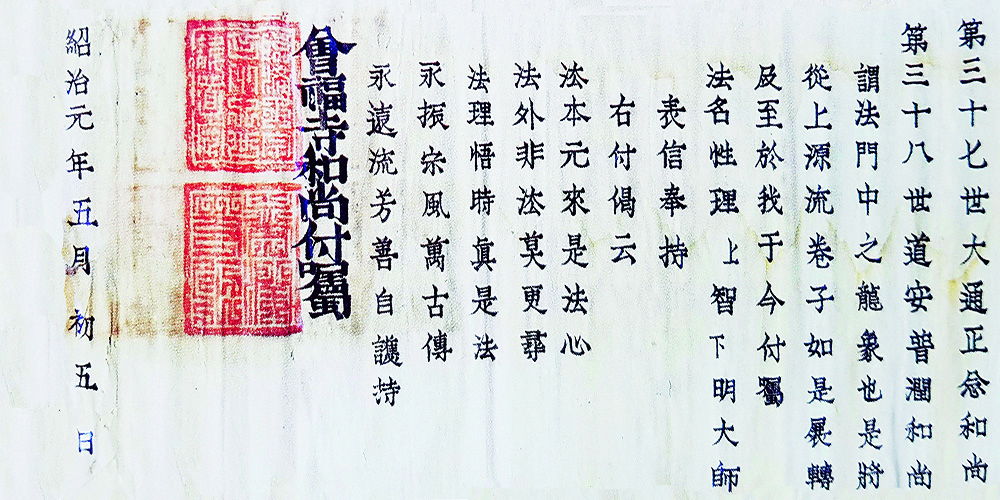 第三十七世大通正念和尚
第三十八世道安普潤和尚
謂法門中之龍象也是將
從上源流卷子如是展轉
及至於我于今付囑
法名性理上智下明大師
表信奉持
右付偈云
法本元來是法心
法外非法莫更尋
法理悟時真是法
永振宗風萬古傳
永遠流芳善自護持
會福寺和尚付囑
紹治元年五月初五日